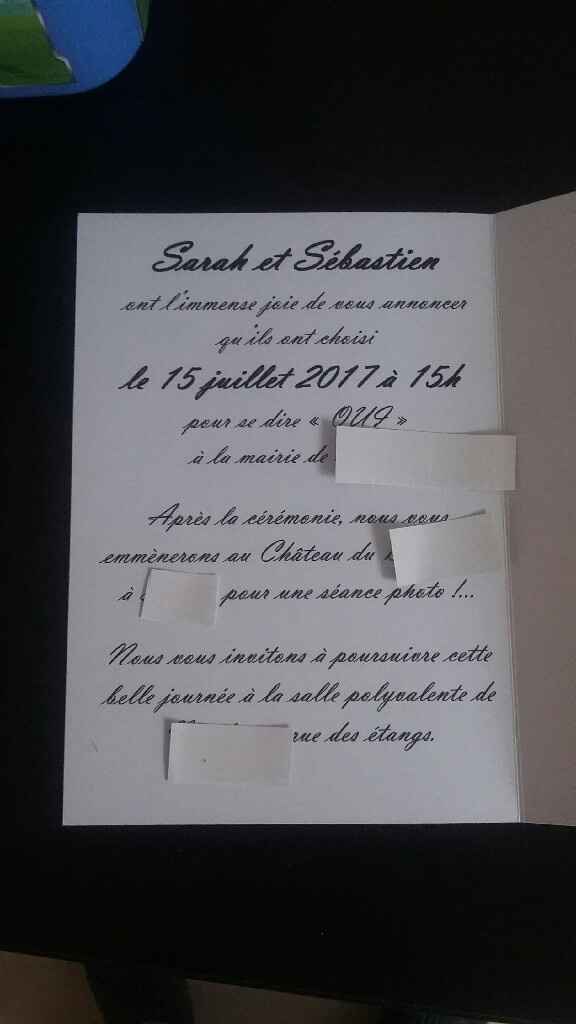 Sarah et Sébastien
ont l'immense joie de vous annoncer
qu'ils ont choisi
le 15 juillet 2017 à 15h
pour se dire « OUI »
à la mairie de
Après la cérémonie, nous vous
emmènerons au Château du
à pour une séance photo !...
Nous vous invitons à poursuivre cette
belle journée à la salle polyvalente de
rue des étangs.